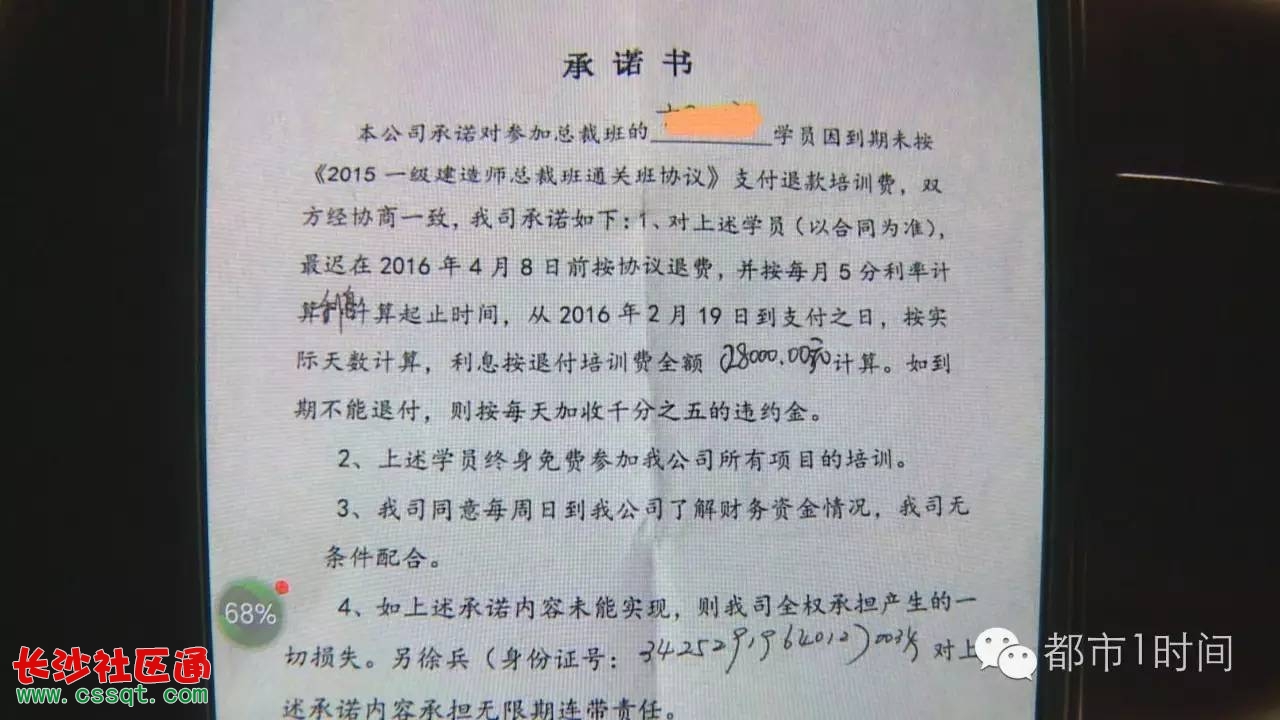 承诺书
本公司承诺对参加总裁班的 学员因到期未按
《2015一级建造师总裁班通关班协议》支付退款培训费，双
方经协商一致，我司承诺如下：1、对上述学员（以合同为准），
最迟在2016年4月8日前按协议退费，并按每月5分利率计
算利息计算起止时间，从2016年2月19日到支付之日，按实
际天数计算，利息按退付培训费全额 28000.00元计算。如到
期不能退付，则按每天加收千分之五的违约金。
2、上述学员终身免费参加我公司所有项目的培训。
3、我司同意每周日到我公司了解财务资金情况，我司无
条件配合。
4、如上述承诺内容未能实现，则我司全权承担产生的一
切损失。另徐兵（身份证号： 对上
述承诺内容承担无限期连带责任。
68%
长沙社区通
www.cssqt.com
都市1时间